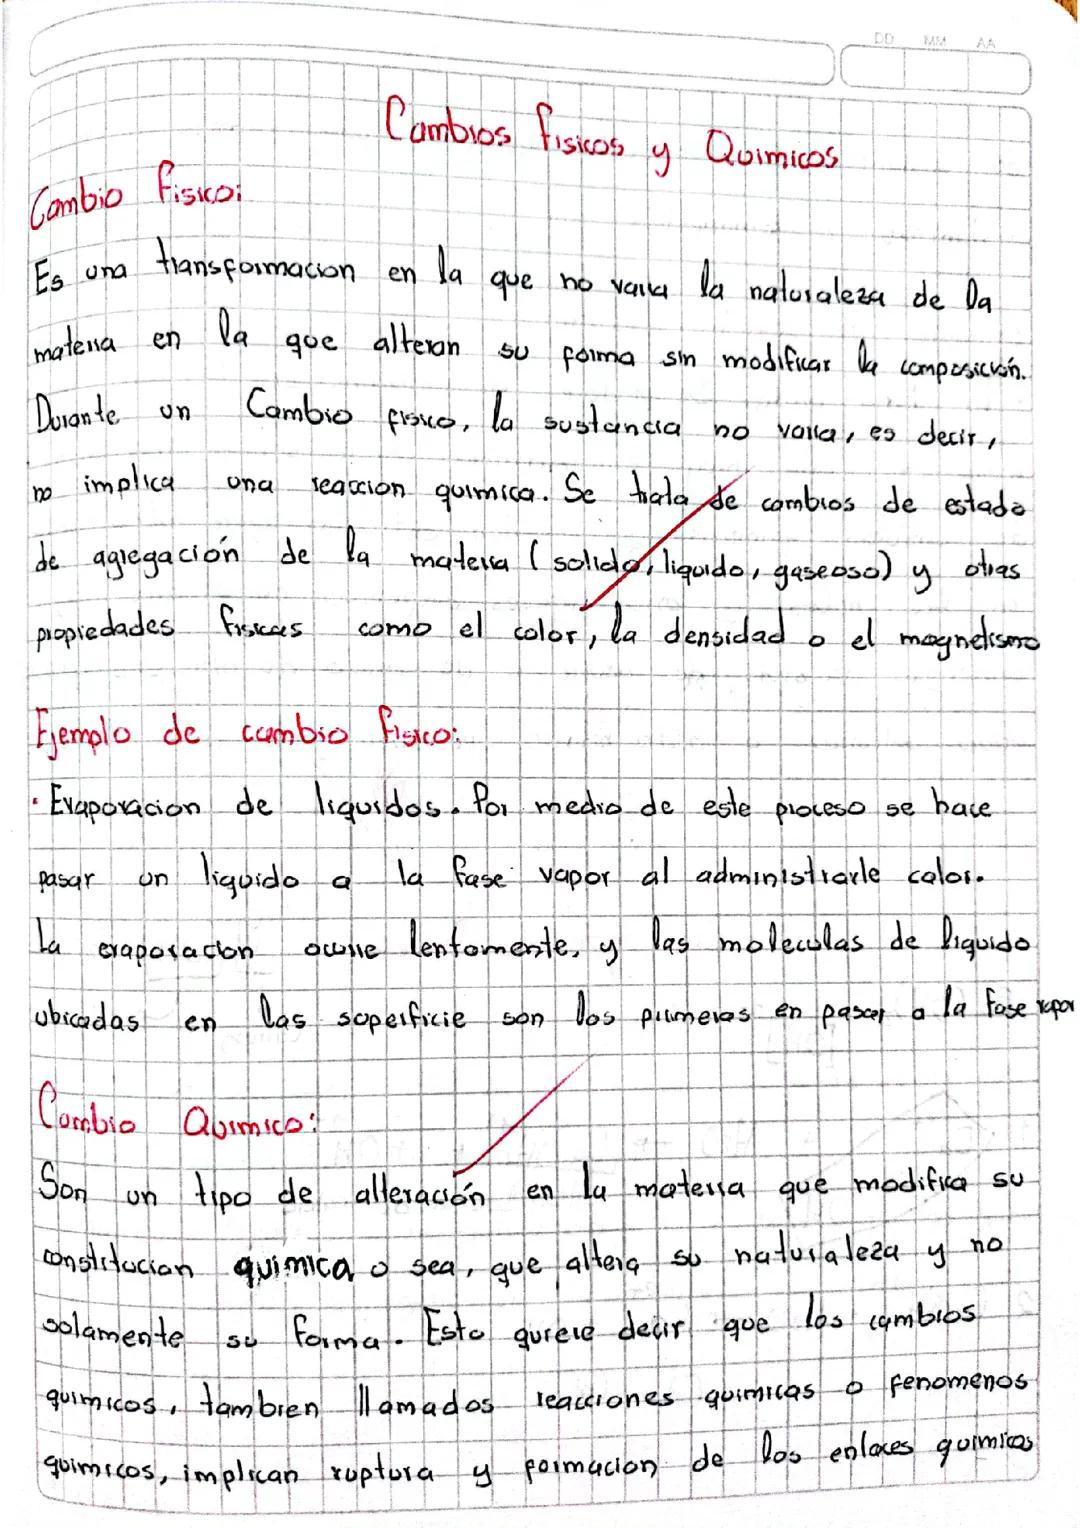 DD MM AA
Cambios fisicos y Quimicos
Cambio fisico:
Es una transformacion en la que no varia la naturaleza de la
materia en la que alteran su forma sin modificar la composición.
Durante un Cambio fisico, la sustancia no varia, es decir,
no implica una reaccion quimica. Se trata de cambios de estado
de agregación de la materia (solido, liquido, gaseoso) y otras
propiedades fisicas como el color, la densidad o el magnetismo
Ejemplo de cambio fisico:
· Evaporacion de liquidos. Por medio de este proceso se hace
pasar un liquido a la fase vapor al administrarle calor.
La evaporacion ocurre lentamente, y las moleculas de liquido
ubicadas en las superficie son los primeros en pasar a la fase vapor
Cambio Quimico:
Son un tipo de alteración en la materia que modifica su
constitucion quimica o sea, que altera su naturaleza y no
solamente su forma. Esto quiere decir que los cambios
quimicos, tambien llamados reacciones quimicas o fenomenos
quimicos, implican ruptura y formacion de los enlaces quimicos